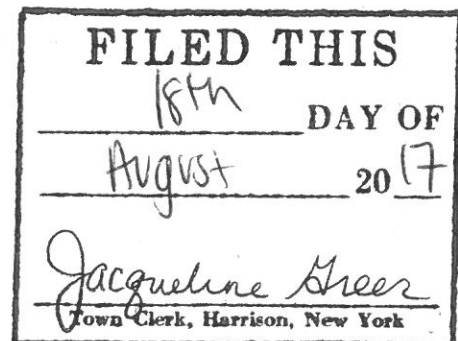 FILED THIS
18th DAY OF
August 2017
Jacqueline Greer
Town Clerk, Harrison, New York